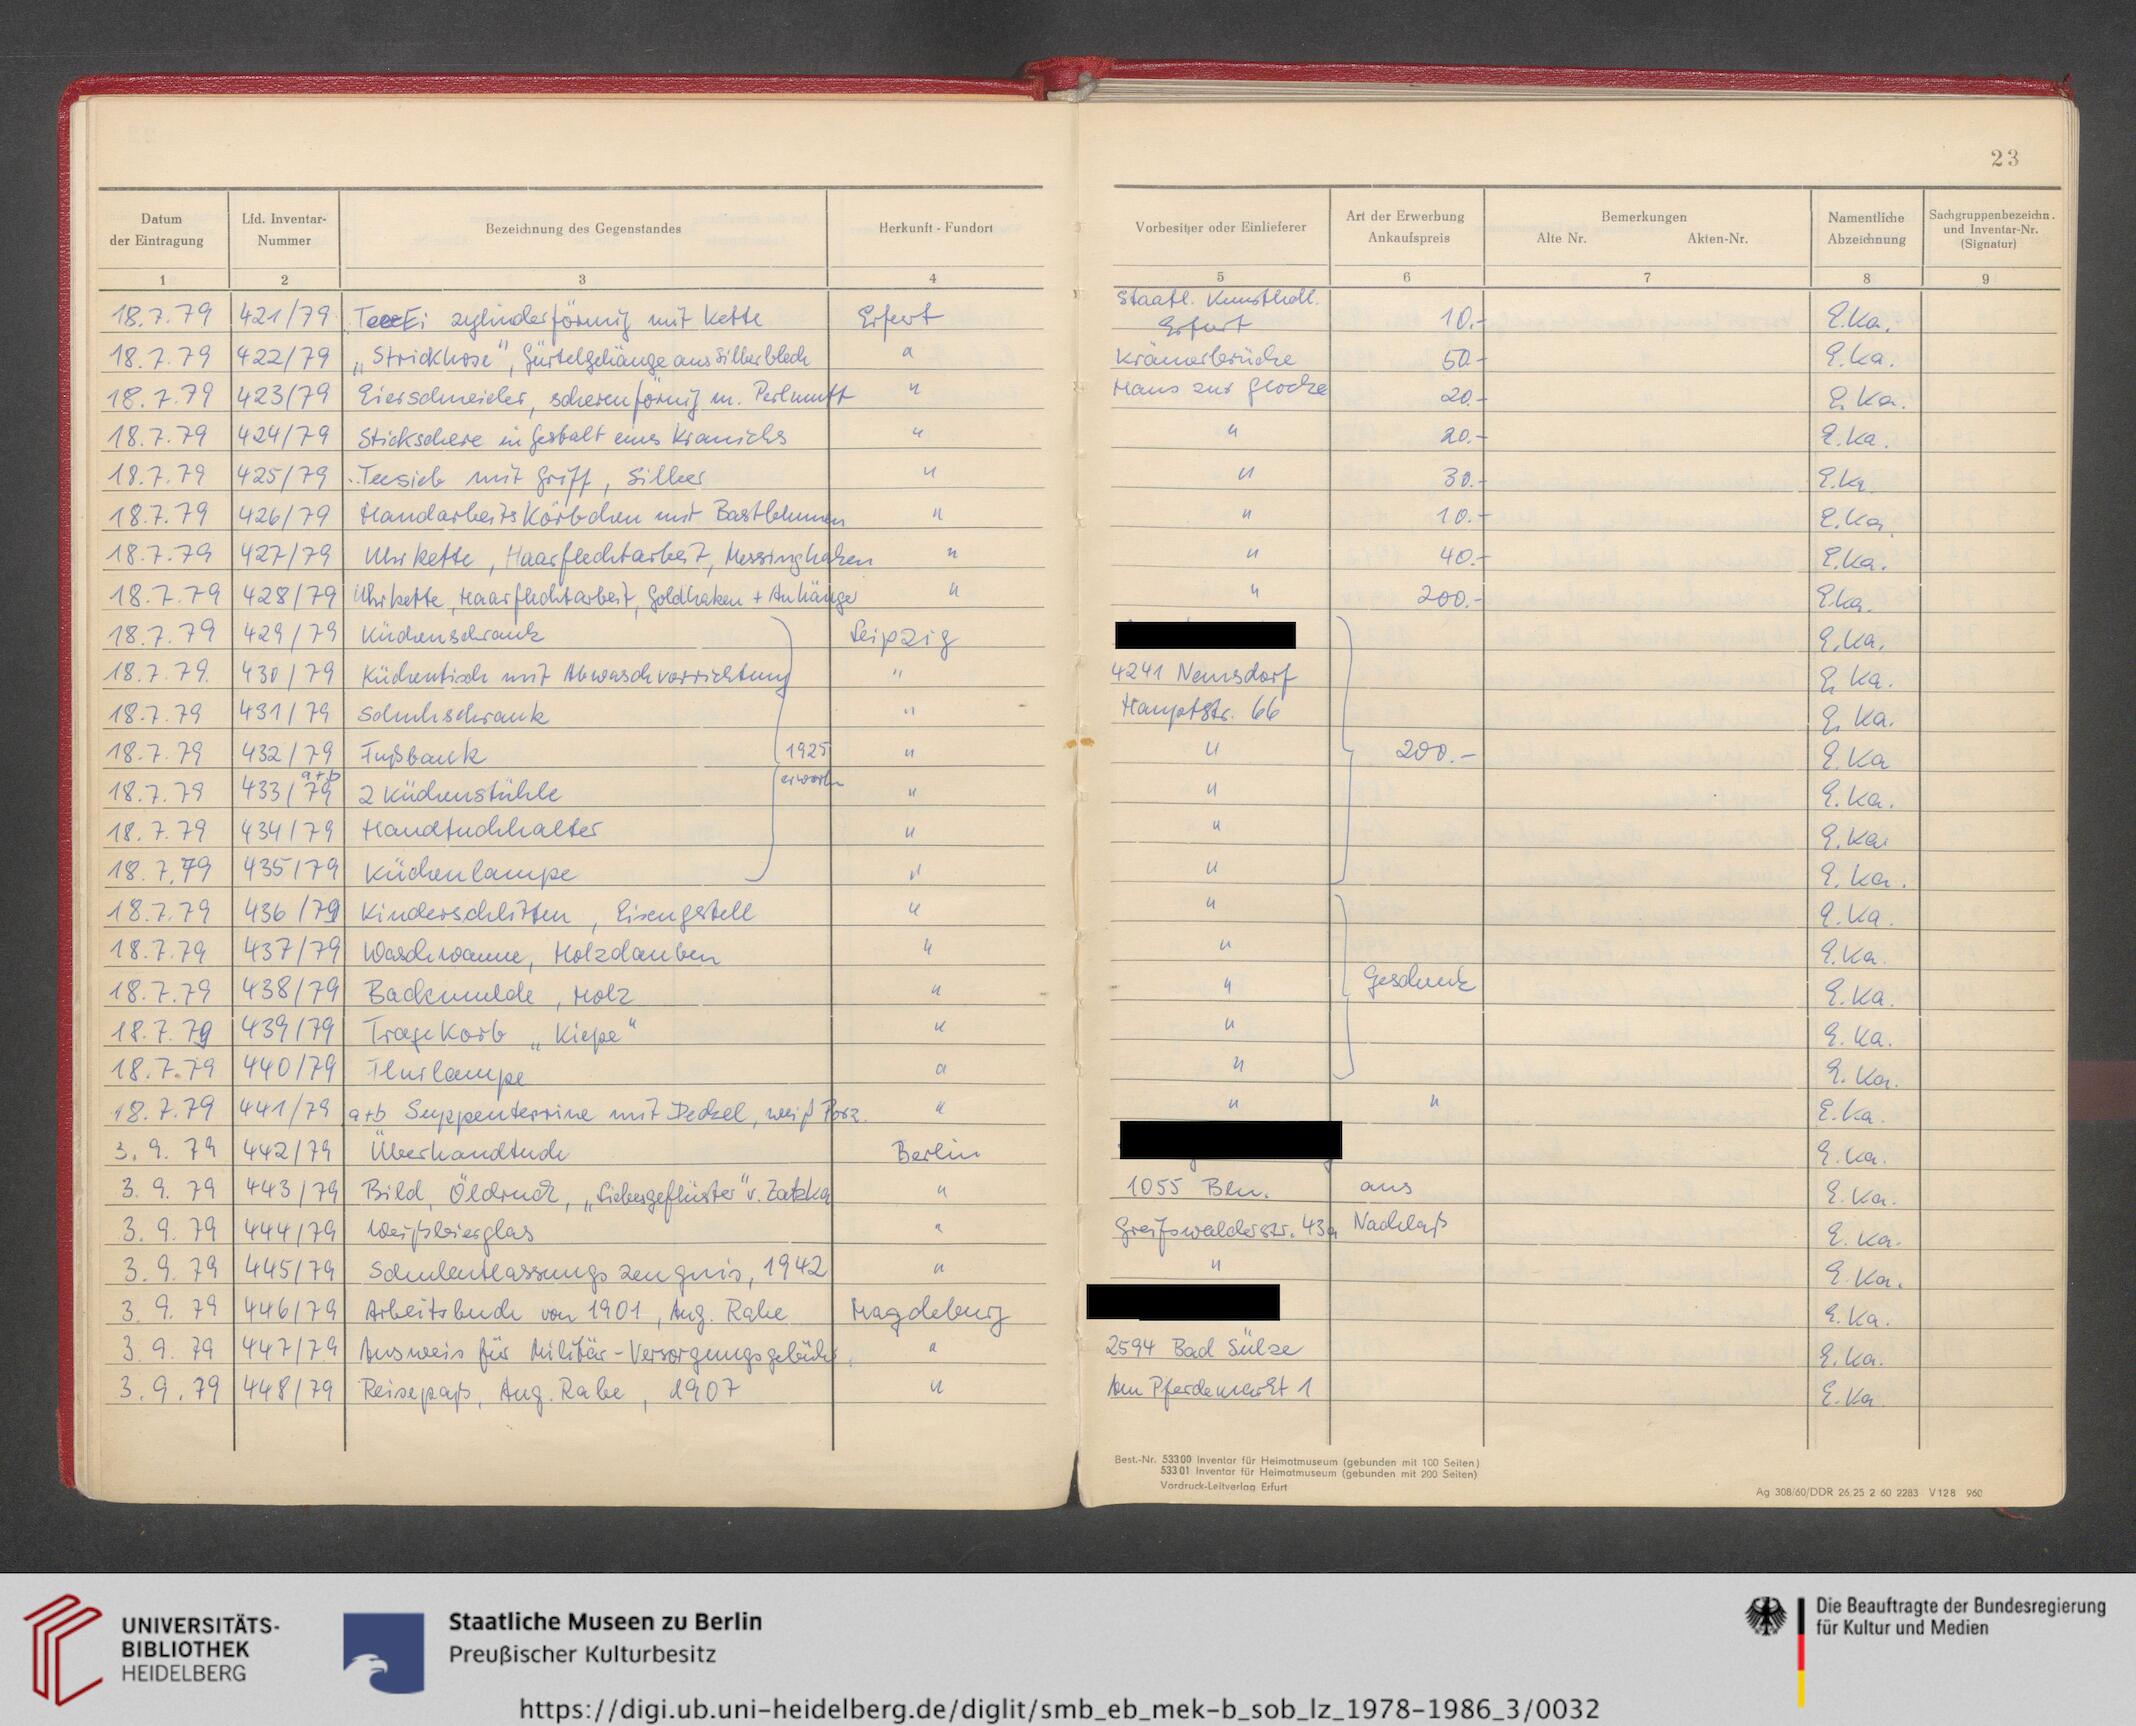 23
Datum der Eintragung | Lfd. Inventar-Nummer | Bezeichnung des Gegenstandes | Herkunft - Fundort | Vorbesitzer oder Einlieferer | Art der Erwerbung Ankaufspreis | Bemerkungen Alte Nr. Akten-Nr. | Namentliche Abzeichnung | Sachgruppenbezeichn. und Inventar-Nr. (Signatur)
1 | 2 | 3 | 4 | 5 | 6 | 7 | 8 | 9
18.7.79 | 421/79 | TeeEi zylinderförmig mit Kette | Erfurt | Staatl. Kunsthdl. Erfurt | 10.- | E.Ka.
18.7.79 | 422/79 | „Strickhose", Gürtelgehänge aus Silberblech | " | Krämerbrücke | 50.- | E.Ka.
18.7.79 | 423/79 | Eierschneider, scherenförmig m. Perlmutt | " | Haus zur Glocke | 20.- | E.Ka.
18.7.79 | 424/79 | Stickschere in Gestalt eines Kranichs | " | " | 20.- | E.Ka.
18.7.79 | 425/79 | Teesieb mit Griff, Silber | " | " | 30.- | E.Ka.
18.7.79 | 426/79 | Handarbeitskörbchen mit Bastblumen | " | " | 10.- | E.Ka.
18.7.79 | 427/79 | Uhrkette, Haarflechtarbeit, Messinghaken | " | " | 40.- | E.Ka.
18.7.79 | 428/79 | Uhrkette, Haarflechtarbeit, Goldhaken + Anhänger | " | " | 200.- | E.Ka.
18.7.79 | 429/79 | Küchenschrank | Leipzig | E.Ka.
18.7.79. | 430/79 | Küchentisch mit Abwaschvorrichtung | " | 4241 Nemsdorf | E.Ka.
18.7.79 | 431/79 | Schuhschrank | " | Hauptstr. 66 | E.Ka.
18.7.79 | 432/79 | Fußbank | 1925 | " | " | 200.- | E.Ka
18.7.79 | 433/79 a+b | 2 Küchenstühle | erworben | " | " | E.Ka.
18.7.79 | 434/79 | Handtuchhalter | " | " | E.Ka.
18.7.79 | 435/79 | Küchenlampe | " | " | E.Ka.
18.7.79 | 436/79 | Kinderschlitten, Eisengestell | " | " | E.Ka.
18.7.79 | 437/79 | Waschwanne, Holzdauben | " | " | E.Ka.
18.7.79 | 438/79 | Backmulde, Holz | " | " | Geschenk | E.Ka.
18.7.79 | 439/79 | Tragekorb „Kiepe" | " | " | E.Ka.
18.7.79 | 440/79 | Flurlampe | " | " | E.Ka.
18.7.79 | 441/79 | a+b Suppenterrine mit Deckel, weiß Porz. | " | " | " | E.Ka.
3.9.79 | 442/79 | Überhandtuch | Berlin | E.Ka.
3.9.79 | 443/79 | Bild, Öldruck, „Liebesgeflüster" v. Zatzka | " | 1055 Bln. | aus | E.Ka.
3.9.79 | 444/79 | Weißbierglas | " | Greifswalderstr. 43a | Nachlaß | E.Ka.
3.9.79 | 445/79 | Schulentlassungszeugnis, 1942 | " | " | E.Ka.
3.9.79 | 446/79 | Arbeitsbuch von 1901, Aug. Rabe | Magdeburg | E.Ka.
3.9.79 | 447/79 | Ausweis für Militär-Versorgungsgebühr. | " | 2594 Bad Sülze | E.Ka.
3.9.79 | 448/79 | Reisepaß, Aug. Rabe, 1907 | " | Am Pferdemarkt 1 | E.Ka
Best.-Nr. 53300 Inventar für Heimatmuseum (gebunden mit 100 Seiten)
53301 Inventar für Heimatmuseum (gebunden mit 200 Seiten)
Vordruck-Leitverlag Erfurt
Ag 308/60/DDR 26,25 2 60 2283 V128 960
UNIVERSITÄTS-
BIBLIOTHEK
HEIDELBERG
Staatliche Museen zu Berlin
Preußischer Kulturbesitz
Die Beauftragte der Bundesregierung
für Kultur und Medien
https://digi.ub.uni-heidelberg.de/diglit/smb_eb_mek-b_sob_lz_1978-1986_3/0032